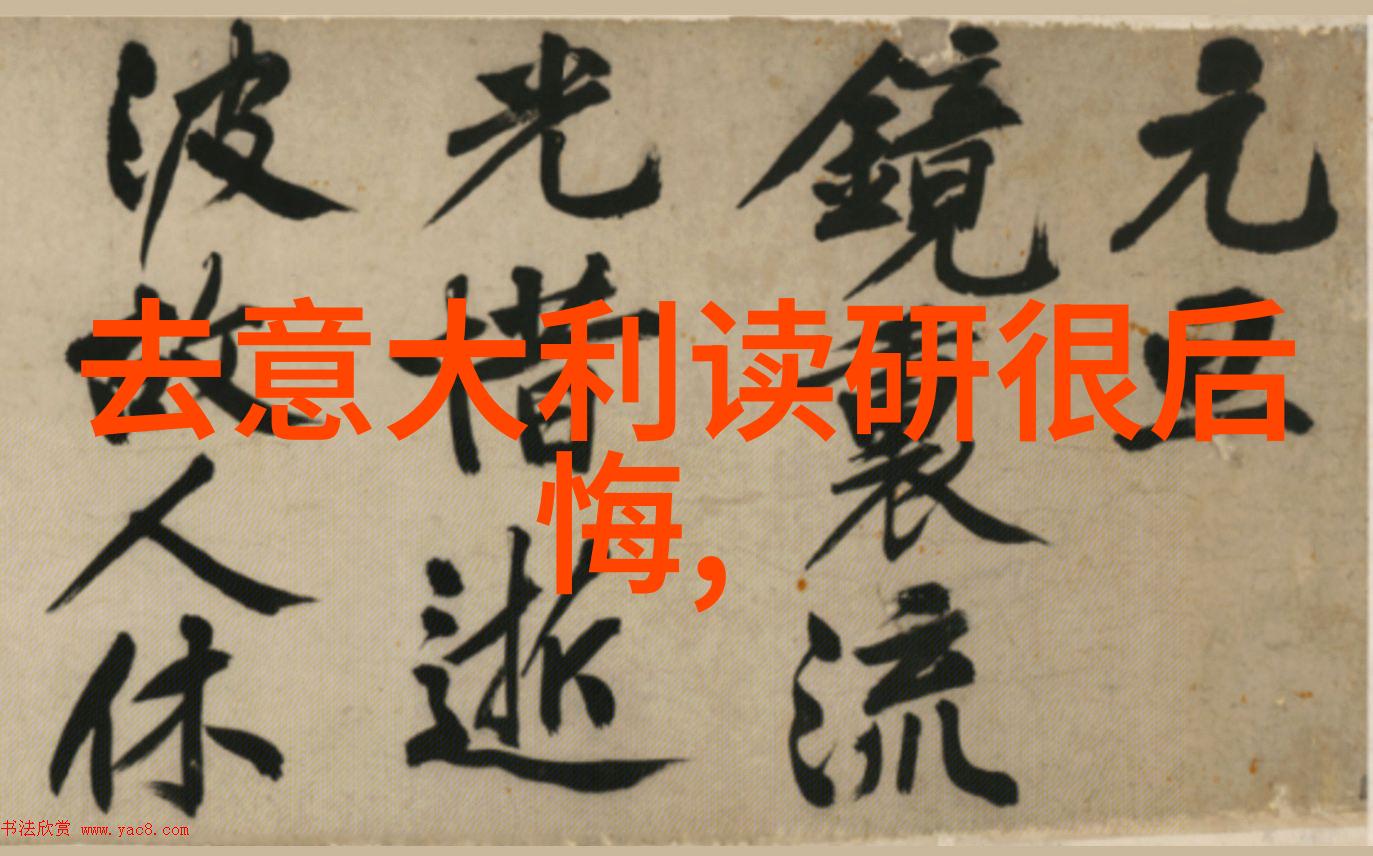 元旦
鏡裏流
光惜逝
波故人休
去意大利读研很后
悔,
书法欣赏 www.yac8.com